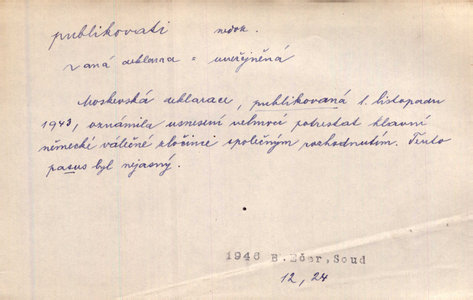 publikovati nedok.
zaná deklarace = uveřejněná
Moskevská deklarace, publikovaná 1. listopadu
1943, oznámila usnesení velmocí potrestat hlavní
německé válečné zločince společným rozhodnutím. Tento
pasus byl nejasný.
1946 B. Ečer, Soud
12, 24